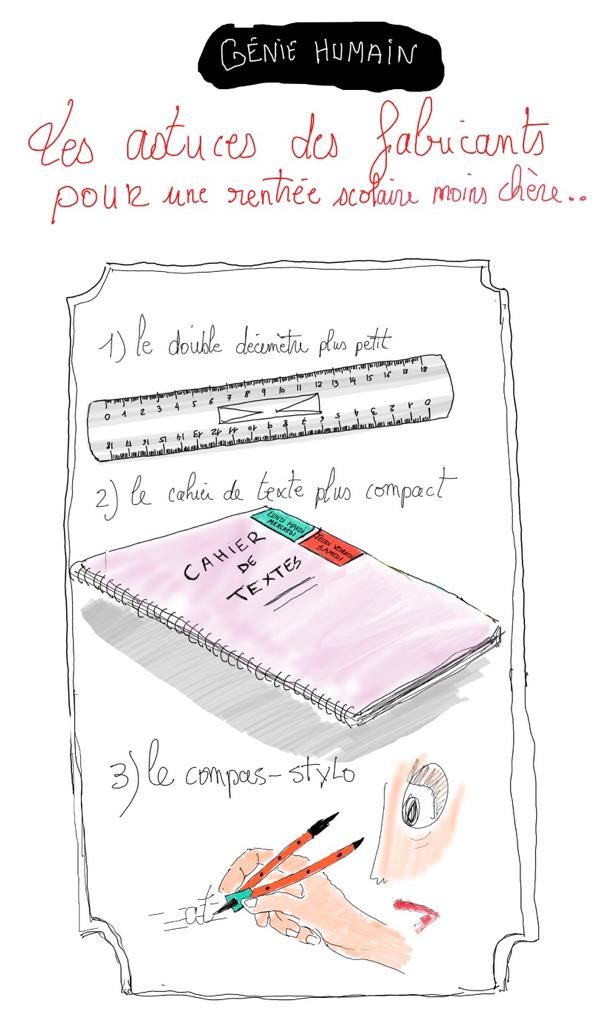 GÉNIE HUMAIN
Les astuces des fabricants
pour une rentrée scolaire moins chère..
1) le double décimètre plus petit
0 1 2 3 4 5 6 7 8 9 10 11 12 13 14 15 16 17 18
0 1 2 3 4 5 6 7 8 9 10 11 12 13 14 15 16 17 18
2) le cahier de texte plus compact
LUNDI MARDI
MERCREDI
JEUDI VENDREDI
SAMEDI
CAHIER
DE
TEXTES
3) le compas-stylo
at